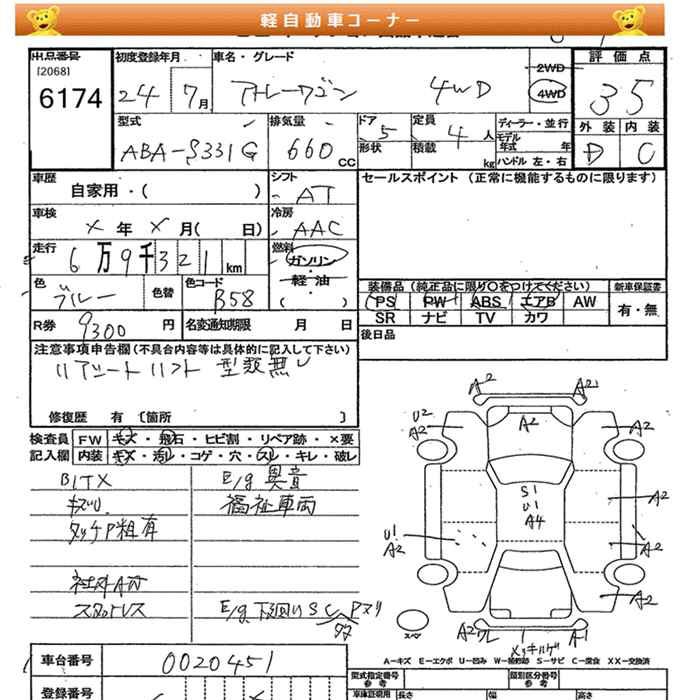 軽自動車コーナー
出品番号
[2068]
6174
初度登録年月
24 7月
車名・グレード
アトレーワゴン 4WD
2WD
4WD
評価点
35
外装 内装
D C
型式
ABA-S331G
排気量
660 CC
ドア
5
形状
定員
4人
積載 kg
ディーラー・並行
モデル年式 年
ハンドル 左・右
車歴
自家用・( )
シフト
AT
セールスポイント (正常に機能するものに限ります)
車検
×年×月( 日)
冷房
AAC
走行
6万9千321km
燃料
ガソリン
・
軽油
・
( )
色
ブルー
色替
色コード
B58
装備品 (純正品に限り○をつけてください)
PS PW ABS エアB AW
SR ナビ TV カワ
新車保証書
有・無
R券 9300円
名変通知期限 月 日
後日品
注意事項申告欄(不具合内容等は具体的に記入して下さい)
リアシートリフト 型数無し
修復歴 有 〔箇所 〕
検査員記入欄
FW キズ・飛石・ヒビ割・リペア跡・×要
内装 キズ・汚れ・コゲ・穴・スレ・キレ・破レ
BITX
キズU
タッチP粗有
社外A付
スタットレス
E/g異音
福祉車両
E/g下回りSC Pヌリ
ダダ
A2 A21
U2
A2
A2
A2
S1
U1
A4
A2
U1
A2
A2
A2
A2 ワレ
A1
メッキハゲ
スペア
A-キズ E-エクボ U-凹み W-補修跡 S-サビ C-腐食 XX-交換済
車台番号 0020451
型式指定番号
参考
類別区分番号
参考
登録番号
車庫証明用
長さ 幅 高さ